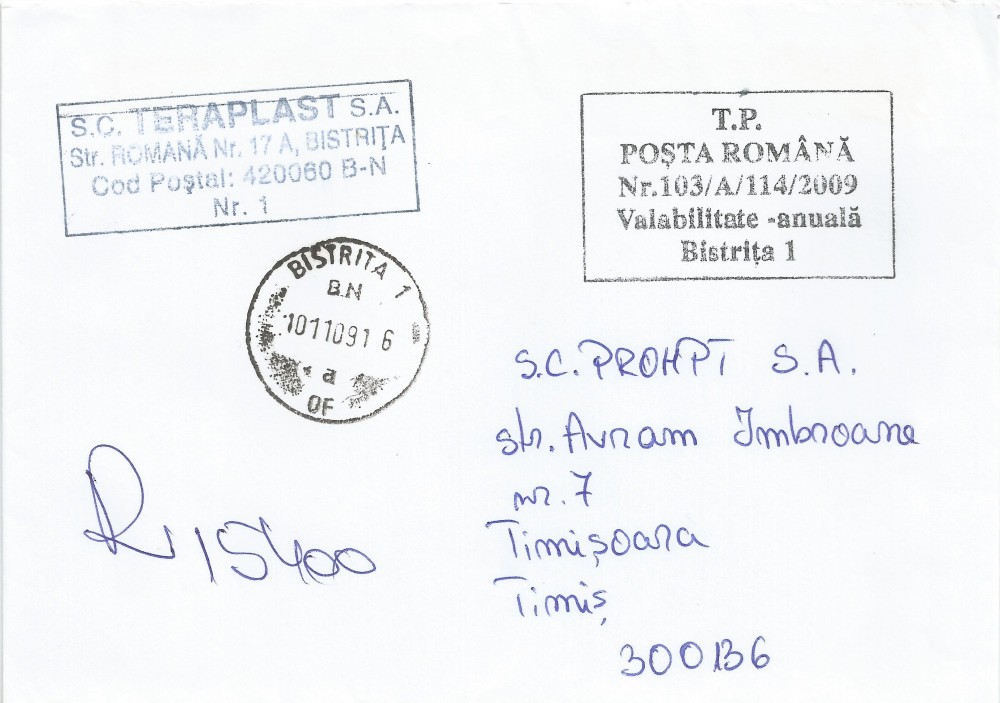 S.C. TERAPLAST S.A.
Str. ROMANĂ Nr. 17 A, BISTRIŢA
Cod Poştal: 420060 B-N
Nr. 1
T.P.
POŞTA ROMÂNĂ
Nr.103/A/114/2009
Valabilitate -anuală
Bistriţa 1
BISTRITA 1
B.N
10110916
a
OF
S.C. PROMPT S.A.
str. Avram Imbroane
nr. 7
Timişoara
Timiş
300136
R 15400